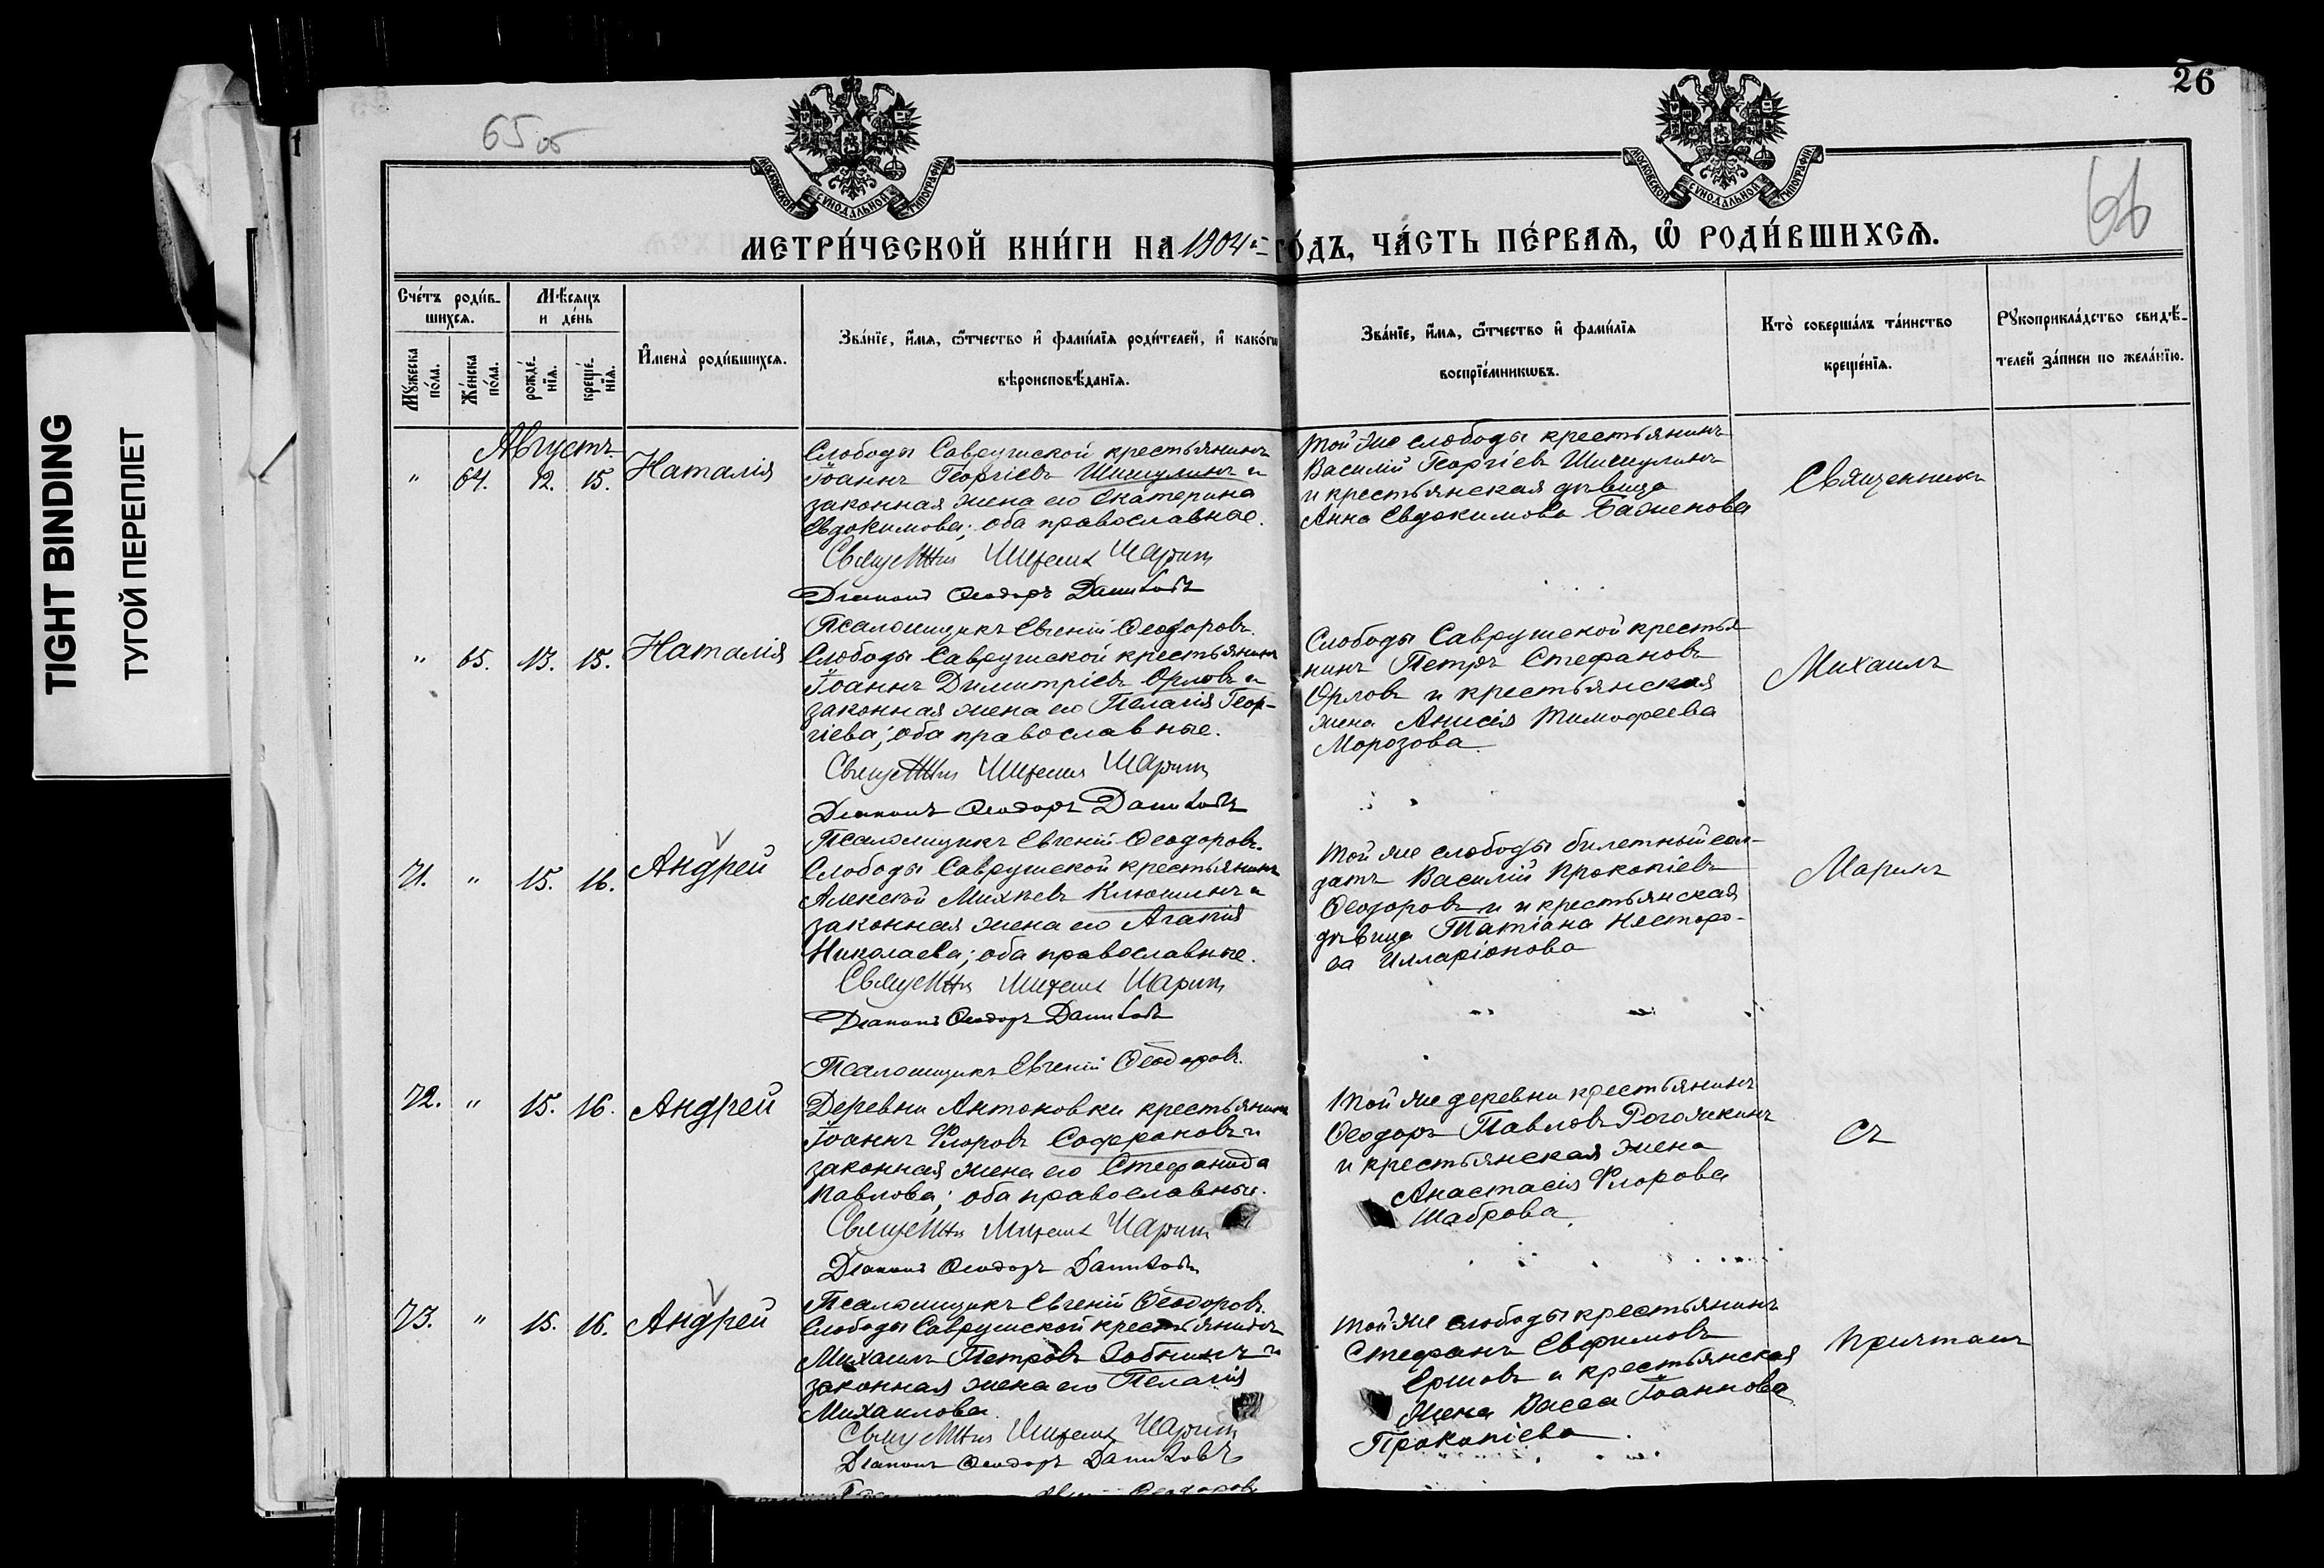 TIGHT BINDING
ТУГОЙ ПЕРЕПЛЕТ
65 об
26
66
МОСКОВСКОЙ СѴНОДАЛЬНОЙ ТИПОГРАФІИ
МОСКОВСКОЙ СѴНОДАЛЬНОЙ ТИПОГРАФІИ
МЕТРИ́ЧЕСКОЙ КНИ́ГИ НА 1904й ГО́ДЪ, ЧА́СТЬ ПЕ́РВАѦ, Ѡ҆ РОДИ́ВШИХСѦ.
Сче́тъ роди́в-
шихсѧ.
Мѣ́сѧцъ
и де́нь
Мꙋ́жеска
по́ла.
Же́нска
по́ла.
рожде́-
нїѧ.
креще́-
нїѧ.
И҆мена̀ роди́вшихсѧ.
Зва́нїе, и҆́мѧ, ѻ҆́тчество и҆ фами́лїѧ роди́телей, и҆ како́гѡ
вѣроисповѣ́данїѧ.
Зва́нїе, и҆́мѧ, ѻ҆́тчество и҆ фами́лїѧ
воспрїе́мникѡвъ.
Кто̀ соверша́лъ та́инство
креще́нїѧ.
Рꙋкоприкла́дство свидѣ́-
телей за́писи по жела́нїю.
Августъ
" 64. 12. 15. Наталія
Слободы Саврушской крестьянинъ
Іоаннъ Георгіевъ Шишулинъ и
законная жена его Екатерина
Евдокимова; оба православные.
Священник Михаил Марин
Діаконъ Ѳеодоръ
Псаломщикъ Евгеній Ѳеодоровъ.
Той же слободы крестьянинъ
Василій Георгіевъ Шишулинъ
и крестьянская дѣвица
Анна Евдокимова Баженова
Священникъ
" 65. 13. 15. Наталія
Слободы Саврушской крестьянинъ
Іоаннъ Димитріевъ Орловъ и
законная жена его Пелагія Геор-
гіева; оба православные.
Священник Михаил Марин
Діаконъ Ѳеодоръ
Псаломщикъ Евгеній Ѳеодоровъ.
Слободы Саврушской крестья-
нинъ Петръ Стефановъ
Орловъ и крестьянская
жена Анисія Тимофеева
Морозова.
Михаилъ
71. " 15. 16. Андрей
Слободы Саврушской крестьянинъ
Алексѣй Михѣевъ Клюшинъ и
законная жена его Агапія
Николаева; оба православные.
Священник Михаил Марин
Діаконъ Ѳеодоръ
Псаломщикъ Евгеній Ѳеодоровъ.
Той же слободы билетный сол-
датъ Василій Прокопіевъ
Ѳеодоровъ и крестьянская
дѣвица Татіана Несторо-
ва Илларіонова
Маринъ
72. " 15. 16. Андрей
Деревни Антоновки крестьянинъ
Іоаннъ Флоровъ Софроновъ и
законная жена его Стефанида
Павлова; оба православные.
Священник Михаил Марин
Діаконъ Ѳеодоръ
Псаломщикъ Евгеній Ѳеодоровъ.
Той же деревни крестьянинъ
Ѳеодоръ Павловъ Рогожкинъ
и крестьянская жена
Анастасія Флорова
Шаброва.
съ
73. " 15. 16. Андрей
Слободы Саврушской крестьянинъ
Михаилъ Петровъ Зобнинъ и
законная жена его Пелагія
Михаилова.
Священник Михаил Марин
Діаконъ Ѳеодоръ
Ѳеодоровъ
Той же слободы крестьянинъ
Стефанъ Евфимовъ
Ершовъ и крестьянская
жена Васса Іоаннова
Прокопіева.
причтомъ